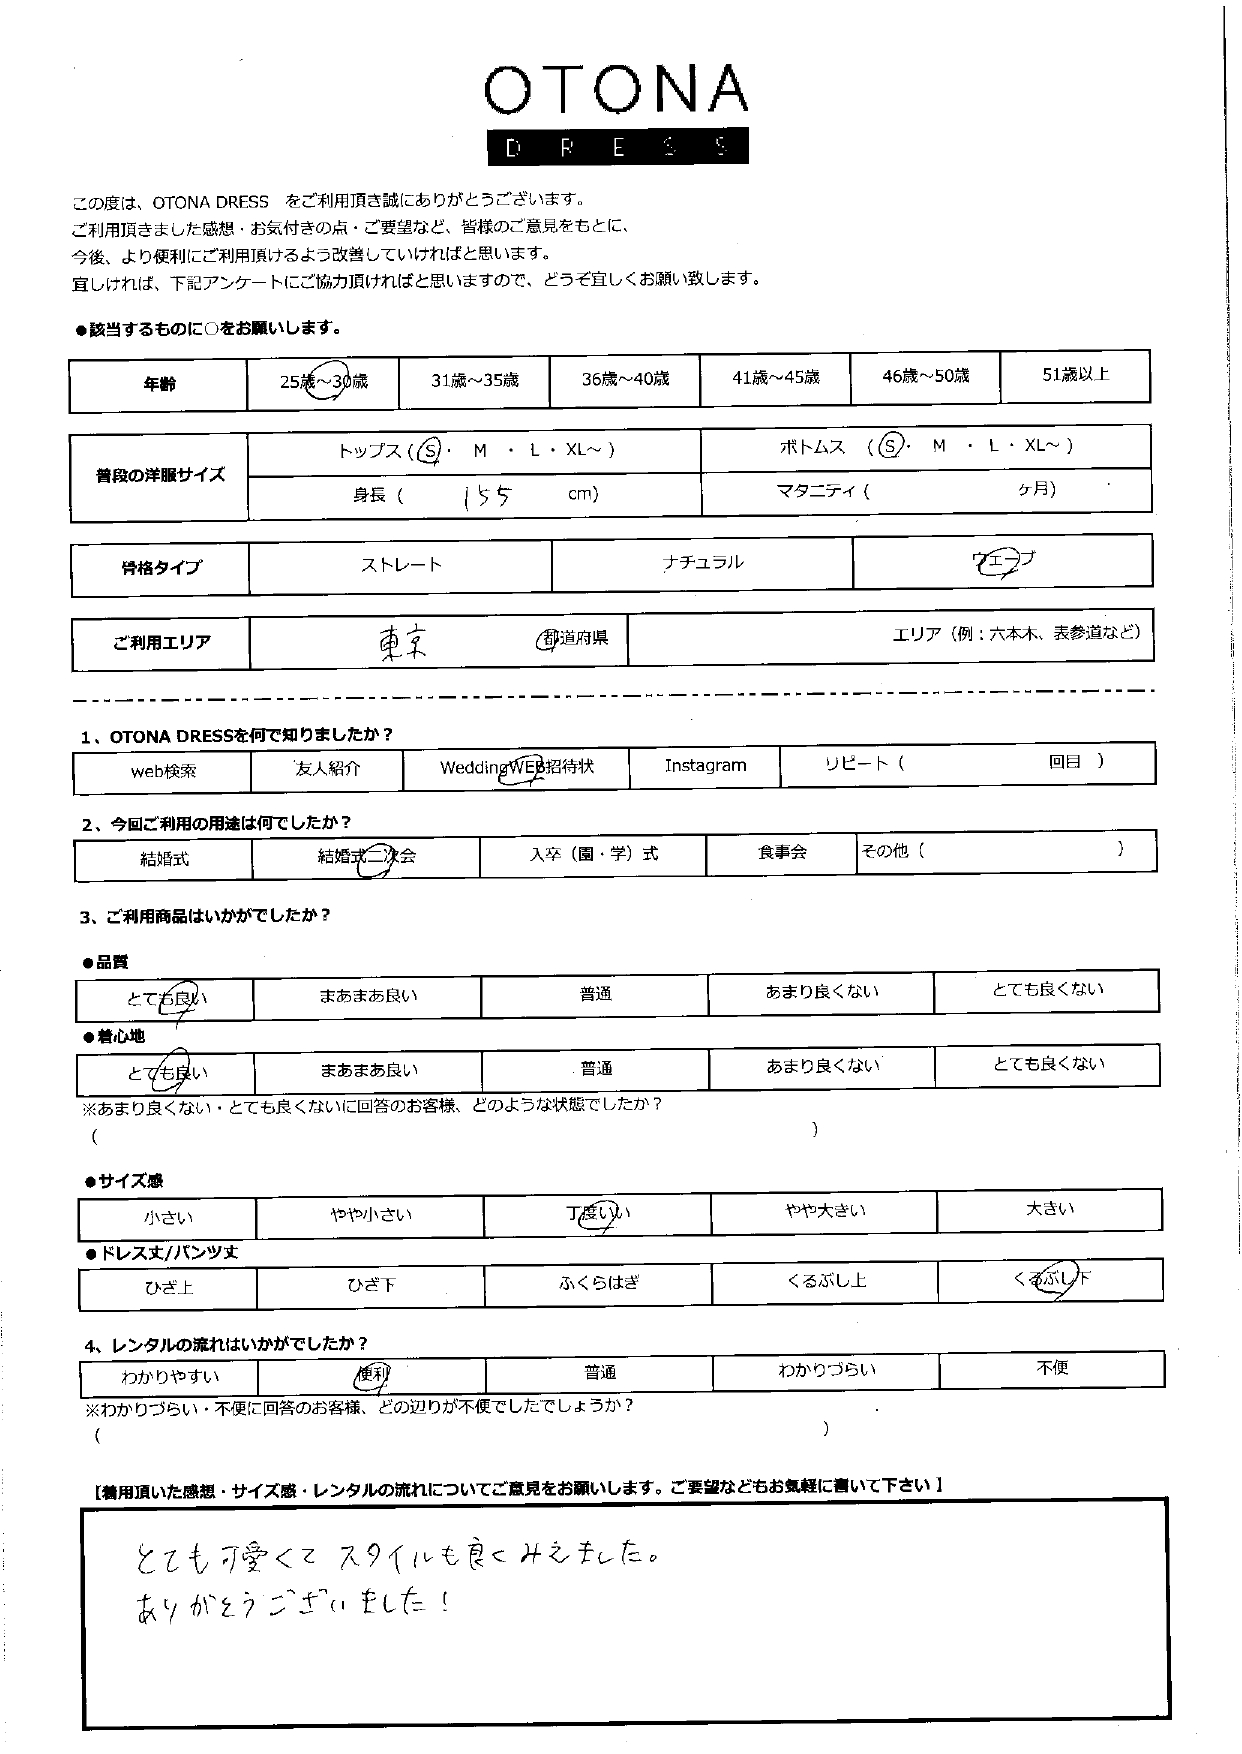 OTONA
DRESS
この度は、OTONA DRESS をご利用頂き誠にありがとうございます。
ご利用頂きました感想・お気付きの点・ご要望など、皆様のご意見をもとに、
今後、より便利にご利用頂けるよう改善していければと思います。
宜しければ、下記アンケートにご協力頂ければと思いますので、どうぞ宜しくお願い致します。
●該当するものに○をお願いします。
年齢 25歳～30歳 31歳～35歳 36歳～40歳 41歳～45歳 46歳～50歳 51歳以上
普段の洋服サイズ トップス (S・ M ・ L ・ XL～ ) ボトムス (S・ M ・ L ・ XL～ )
身長 ( 155 cm) マタニティ ( ケ月)
骨格タイプ ストレート ナチュラル ウェーブ
ご利用エリア 東京 都道府県 エリア（例：六本木、表参道など）
1、OTONA DRESSを何で知りましたか？
web検索 友人紹介 WeddingWEB招待状 Instagram リピート ( 回目 )
2、今回ご利用の用途は何でしたか？
結婚式 結婚式二次会 入卒（園・学）式 食事会 その他 ( )
3、ご利用商品はいかがでしたか？
●品質
とても良い まあまあ良い 普通 あまり良くない とても良くない
●着心地
とても良い まあまあ良い 普通 あまり良くない とても良くない
※あまり良くない・とても良くないに回答のお客様、どのような状態でしたか？
( )
●サイズ感
小さい やや小さい 丁度いい やや大きい 大きい
●ドレス丈/パンツ丈
ひざ上 ひざ下 ふくらはぎ くるぶし上 くるぶし下
4、レンタルの流れはいかがでしたか？
わかりやすい 便利 普通 わかりづらい 不便
※わかりづらい・不便に回答のお客様、どの辺りが不便でしたでしょうか？
( )
【着用頂いた感想・サイズ感・レンタルの流れについてご意見をお願いします。ご要望などもお気軽に書いて下さい】
とても可愛くてスタイルも良くみえました。
ありがとうございました！